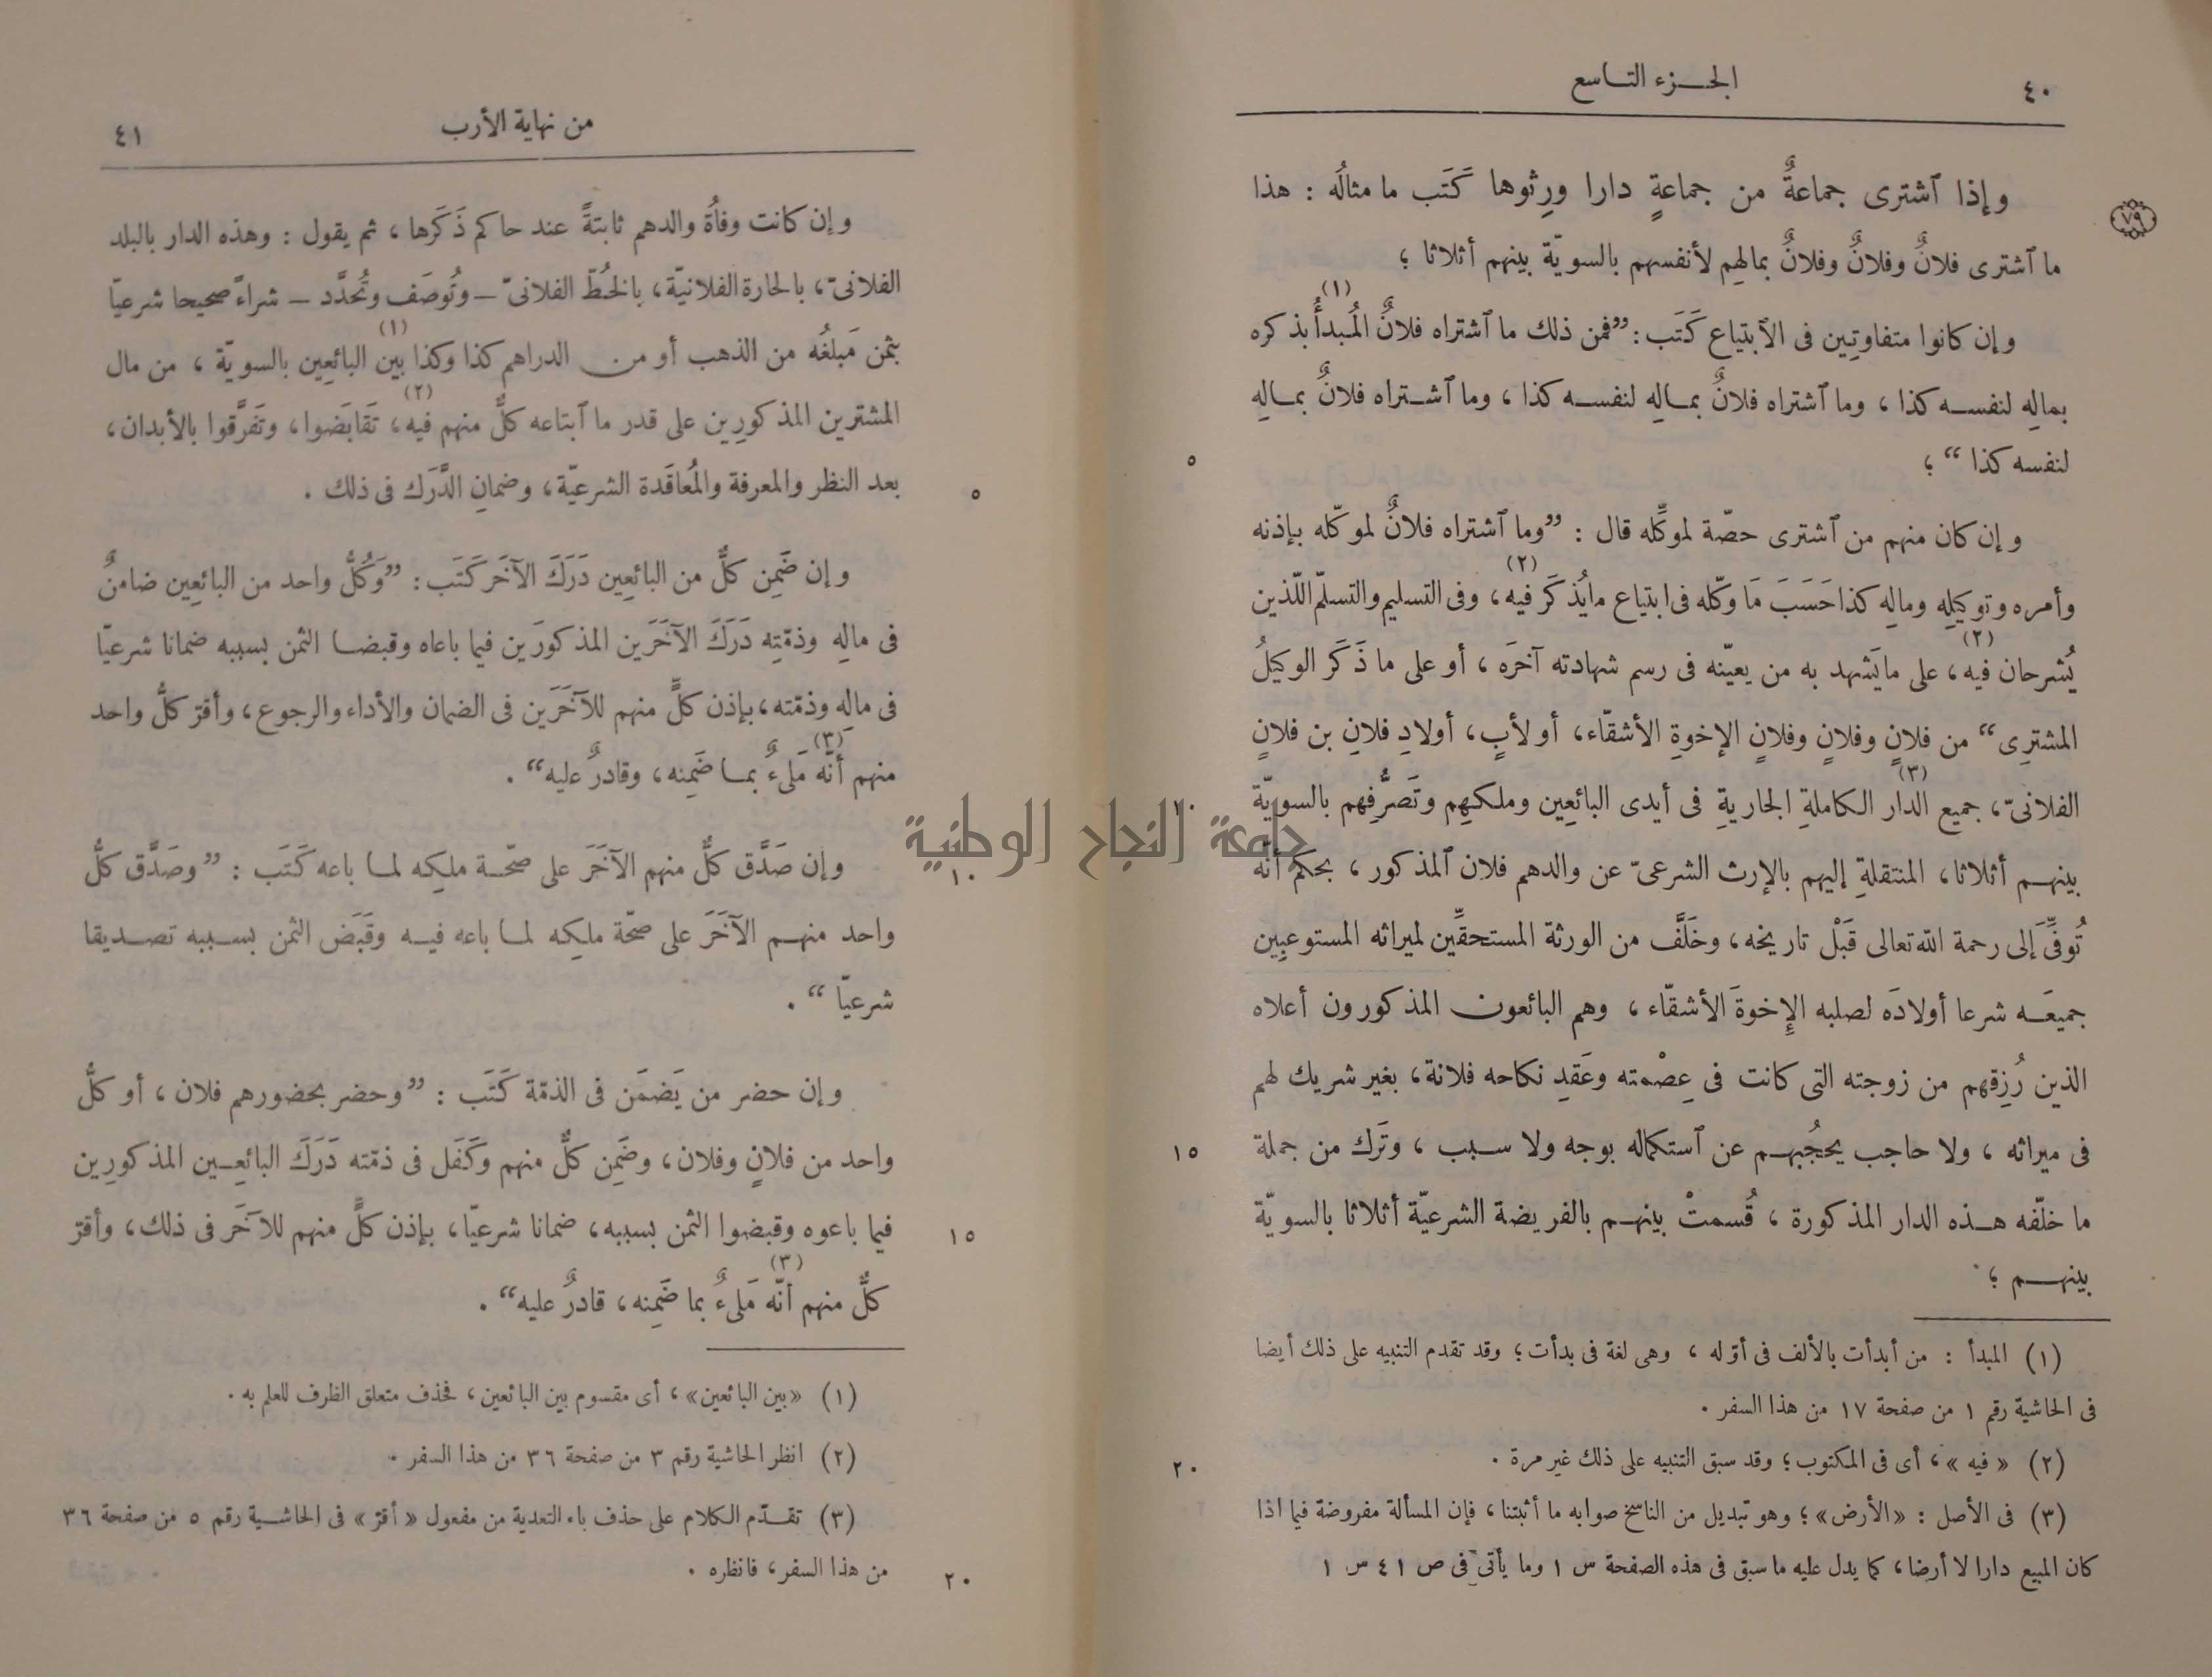 ٤٠
الجزء التاسع
وإذا ٱشترى جماعةٌ من جماعةٍ دارا ورِثوها كَتَب ما مثالُه : هذا
٧٩
ما ٱشترى فلانٌ وفلانٌ وفلانٌ بمالهِم لأنفسهم بالسويّة بينهم أثلاثا ؛
وإن كانوا متفاوتِين فى الٱبتياع كَتَب : ”فمن ذلك ما ٱشتراه فلانٌ المُبدأُ(١) بذكره
بمالِه لنفسه كذا ، وما ٱشتراه فلانٌ بمالِه لنفسه كذا ، وما ٱشتراه فلانٌ بمالِه
لنفسه كذا“ ؛
٥
وإن كان منهم من ٱشترى حصّة لموكِّله قال : ”وما ٱشتراه فلانٌ لموكّله بإذنه
وأمره وتوكيلِه ومالِه كذا حَسَبَ مَا وكّله فى ابتياع مايُذكَر فيه(٢)، وفى التسليم والتسلّم اللّذين
يُشرحان فيه(٢)، على مايَشهد به من يعيّنه فى رسم شهادته آخرَه ، أو على ما ذَكَر الوكيلُ
المشترِى“ من فلانٍ وفلانٍ وفلانٍ الإخوةِ الأشقّاء، أو لأبٍ، أولادِ فلانِ بن فلانٍ
الفلانىّ، جميع الدار(٣) الكاملةِ الجاريةِ فى أيدى البائعِين وملكهِم وتَصرُّفِهم بالسويّة
١٠
بينهم أثلاثا، المنتقلةِ إليهم بالإرث الشرعىّ عن والدهم فلان ٱلمذكور ، بحكم أنّه
تُوفِّىَ إلى رحمة الله تعالى قَبْل تاريخه، وخَلَّف من الورثة المستحقِّين لميراثه المستوعبِين
جميعَه شرعا أولادَه لصلبه الإِخوةَ الأشقّاء ، وهم البائعون المذكورون أعلاه
الذين رُزِقهم من زوجته التى كانت فى عِصْمته وعَقدِ نكاحه فلانة، بغير شريك لهم
فى ميراثه ، ولا حاجب يحجُبهم عن ٱستكماله بوجه ولا سبب ، وتَرك من جملة
١٥
ما خلّفه هذه الدار المذكورة ، قُسمتْ بينهم بالفريضة الشرعيّة أثلاثا بالسويّة
بينهم ؛
(١) المبدأ : من أبدأت بالألف فى أوّله ، وهى لغة فى بدأت ؛ وقد تقدم التنبيه على ذلك أيضا
فى الحاشية رقم ١ من صفحة ١٧ من هذا السفر .
(٢) «فيه»، أى فى المكتوب ؛ وقد سبق التنبيه على ذلك غير مرة .
٢٠
(٣) فى الأصل : «الأرض» ؛ وهو تبديل من الناسخ صوابه ما أثبتنا، فإن المسألة مفروضة فيما اذا
كان المبيع دارا لا أرضا، كما يدل عليه ما سبق فى هذه الصفحة س ١ وما يأتى فى ص ٤١ س ١
من نهاية الأرب
٤١
وإن كانت وفاةُ والدهم ثابتةً عند حاكم ذَكَرها ، ثم يقول : وهذه الدار بالبلد
الفلانىّ، بالحارة الفلانيّة، بالخُطّ الفلانىّ – وتُوصَف وتُحدَّد – شراءً صحيحا شرعيّا
بثمن مَبلغُه من الذهب أو من الدراهم كذا وكذا بين(١) البائعِين بالسويّة ، من مال
المشترين المذكورِين على قدر ما ٱبتاعه كلٌّ منهم فيه(٢)، تَقابَضوا، وتَفرَّقوا بالأبدان،
بعد النظر والمعرفة والمُعاقَدة الشرعيّة، وضمانِ الدَّرَك فى ذلك .
٥
وإن ضَمِن كلٌّ من البائعِين دَرَكَ الآخَر كَتَب : ”وَكُلُّ واحد من البائعِين ضامنٌ
فى مالِه وذمّتِه دَرَكَ الآخَرَين المذكورَين فيما باعاه وقبضا الثمن بسببه ضمانا شرعيّا
فى مالِه وذمّته، بإذن كلٍّ منهم للآخَرَين فى الضمان والأداء والرجوع، وأقرّ كلُّ واحد
منهم أنّه(٣) مَلىءٌ بما ضَمِنه، وقادرٌ عليه“ .
وإن صَدَّق كلٌّ منهم الآخَرَ على صحّة ملكِه لما باعه كَتَب : ”وصَدَّق كلُّ
١٠
واحد منهم الآخَرَ على صحّة ملكِه لما باعه فيه وقَبَض الثمن بسببه تصديقا
شرعيّا“ .
وإن حضر من يَضمَن فى الذمّة كَتَب : ”وحضر بحضورهم فلان ، أو كلُّ
واحد من فلانٍ وفلان، وضَمِن كلٌّ منهم وكَفَل فى ذمّته دَرَكَ البائعِين المذكورِين
فيما باعوه وقبضوا الثمن بسببه، ضمانا شرعيّا، بإذن كلٍّ منهم للآخَر فى ذلك، وأقرّ
١٥
كلٌّ منهم أنّه(٣) مَلىءٌ بما ضَمِنه، قادرٌ عليه“ .
(١) «بين البائعين»، أى مقسوم بين البائعين، فحذف متعلق الظرف للعلم به .
(٢) انظر الحاشية رقم ٣ من صفحة ٣٦ من هذا السفر .
(٣) تقدّم الكلام على حذف باء التعدية من مفعول «أقرّ» فى الحاشية رقم ٥ من صفحة ٣٦
من هذا السفر، فانظره .
٢٠
جامعة النجاح الوطنية